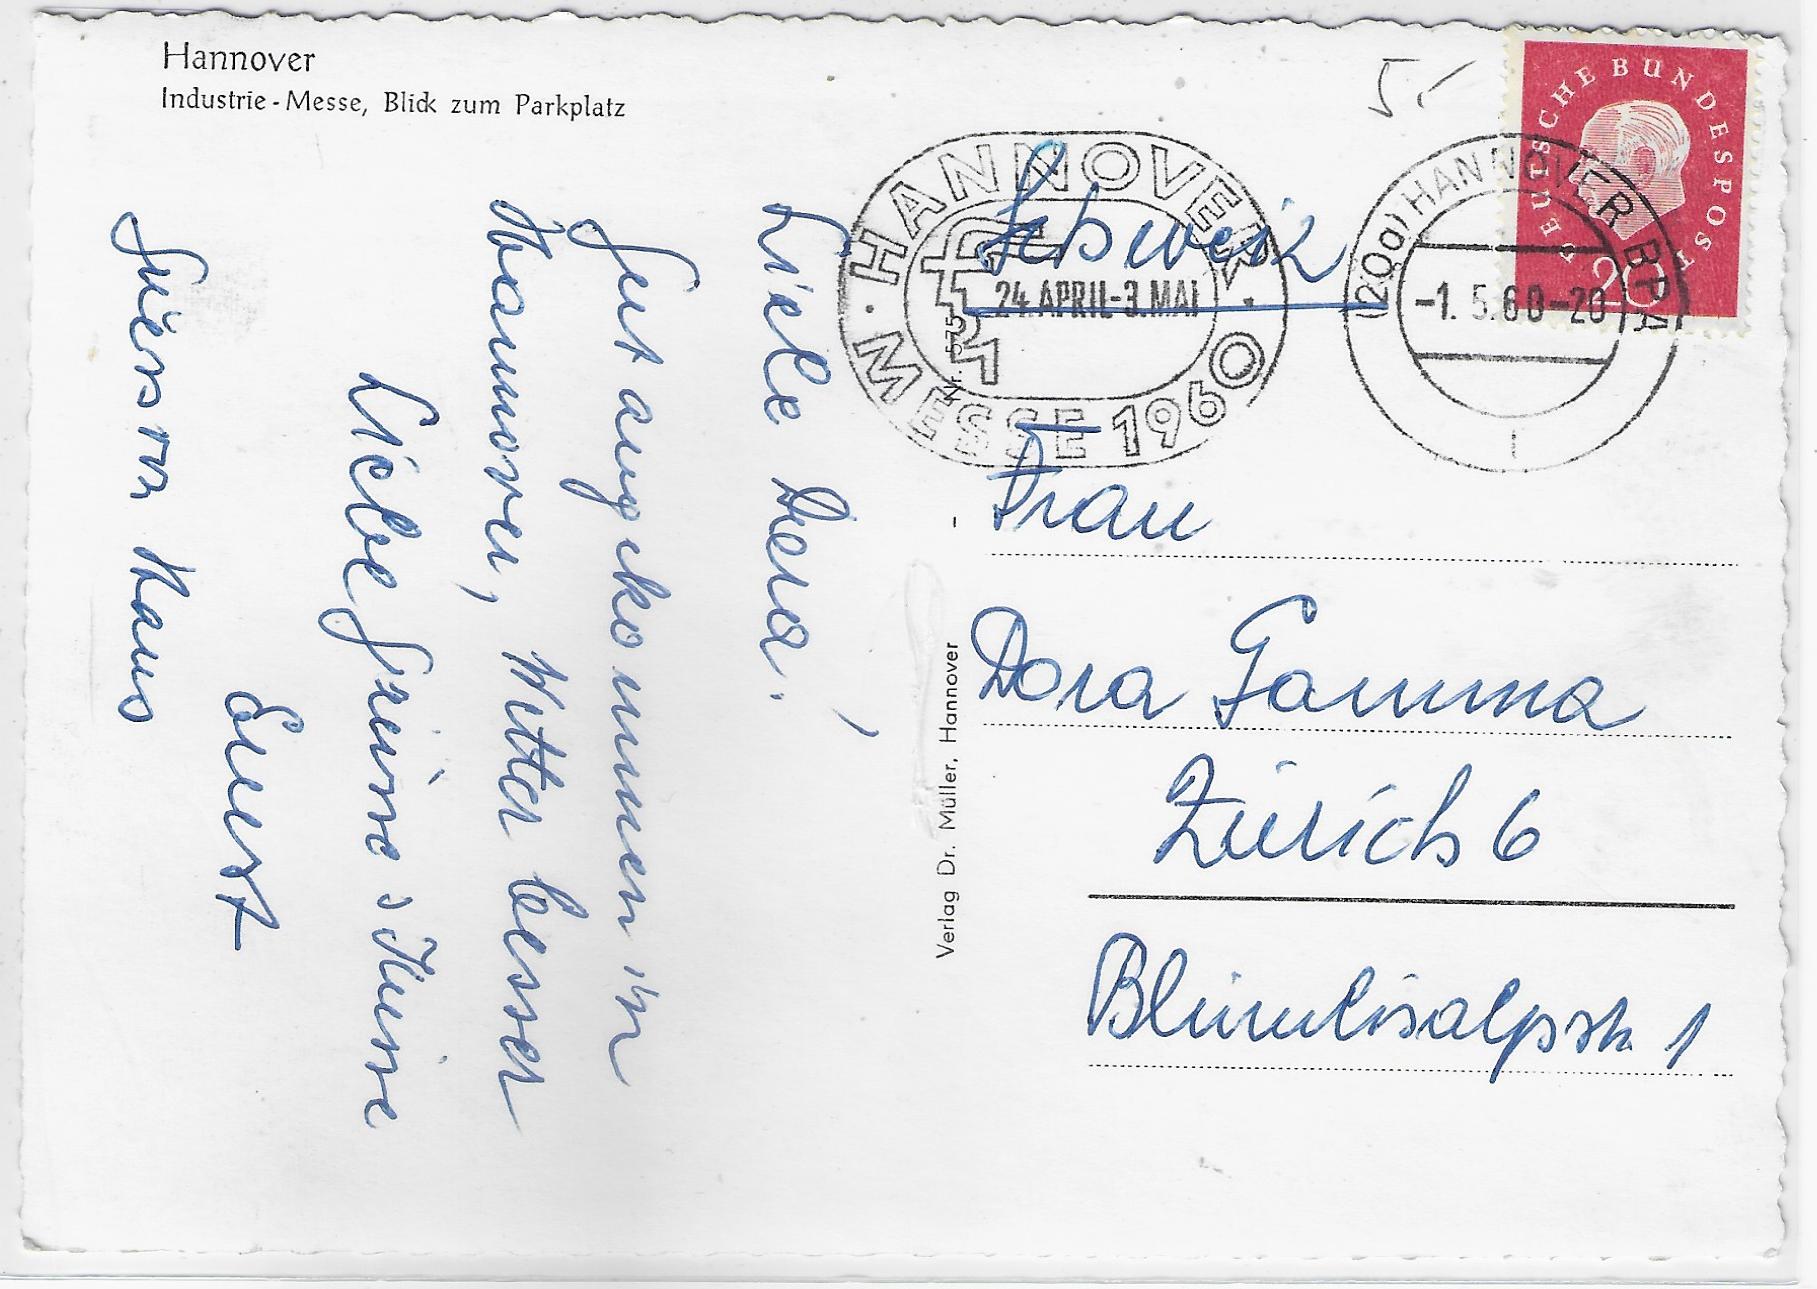 Hannover
Industrie-Messe, Blick zum Parkplatz
5.-
DEUTSCHE BUNDESPOST
20
HANNOVER
MESSE 1960
24. APRIL-3. MAI
(20a) HANNOVER BPA
-1. 5. 60-20
Schweiz
Nr. 575
Verlag Dr. Müller, Hannover
Frau
Dora Gamma
Zürich 6
Blümlisalpstr. 1
Liebe Dora,
Gut angekommen in
Hannover, Wetter besser
Liebe Grüsse & Küsse
Ernst
Hans